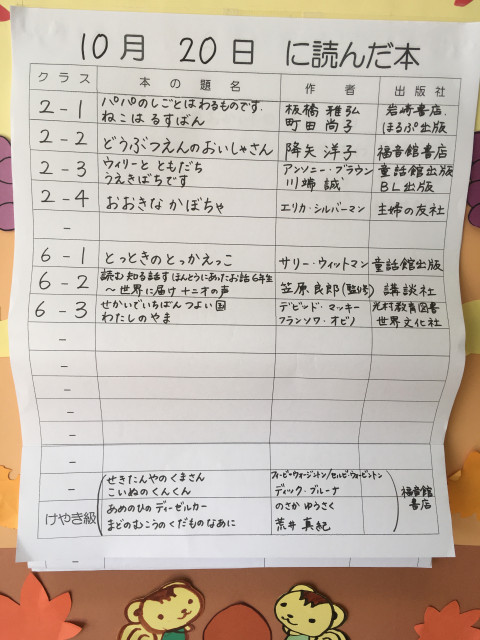 10月 20日 に読んだ本
クラス 本の題名 作者 出版社
2-1 パパのしごとはわるものです. 板橋 雅弘 岩崎書店.
ねこはるすばん 町田 尚子 ほるぷ出版
2-2 どうぶつえんのおいしゃさん 降矢 洋子 福音館書店
2-3 ウィリーと ともだち アンソニー・ブラウン 童話館出版
うえきばちです 川端 誠 BL出版
2-4 おおきな かぼちゃ エリカ・シルバーマン 主婦の友社
-
6-1 とっときのとっかえっこ サリー・ウィットマン 童話館出版
6-2 読む知る話す ほんとうにあったお話6年生 笠原良郎(監修) 講談社
〜世界に届け 十二才の声
6-3 せかいでいちばん つよい国 デビッド・マッキー 光村教育図書
わたしのやま フランソワ・オビノ 世界文化社
-
-
-
-
-
-
-
けやき級 せきたんやのくまさん フィービ・ウォージントン/セルビ・ウォージントン 福音館書店
こいぬのくんくん ディック・ブルーナ
あめのひの ディーゼルカー のさか ゆうさく
まどのむこうの くだもの なあに 荒井 真紀
-